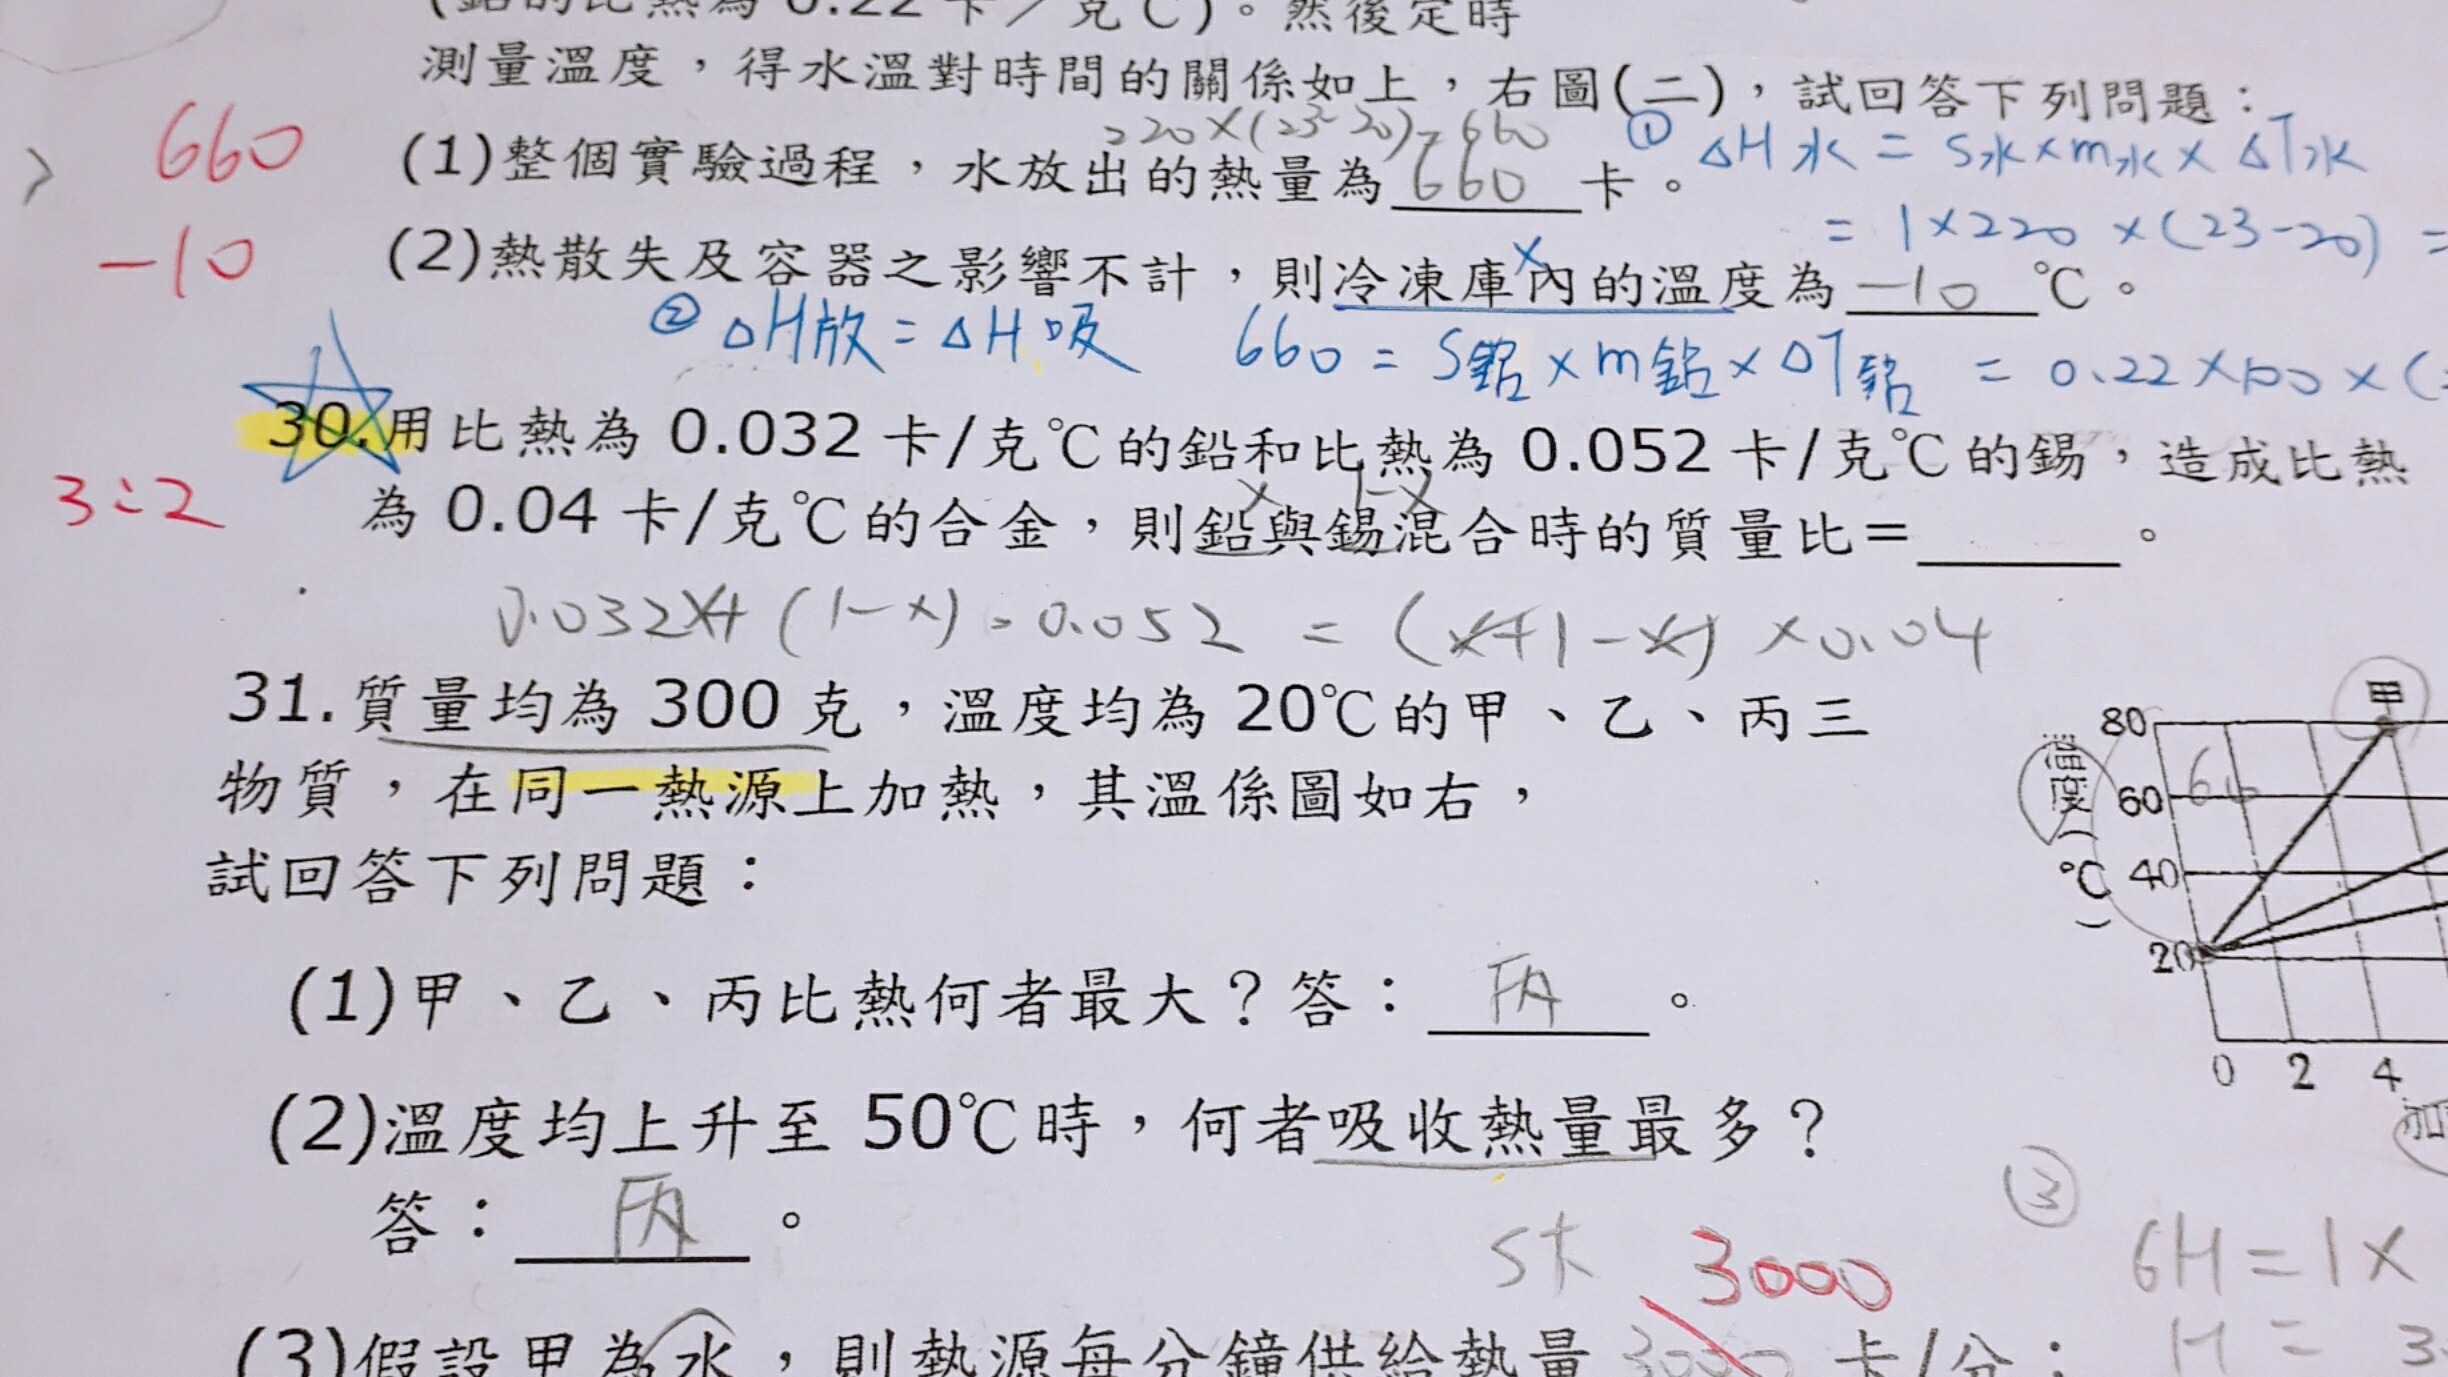 (鋁的比熱為 0.22 卡/克℃)。然後定時
測量溫度,得水溫對時間的關係如上,右圖(二),試回答下列問題:
220×(23-20)=660
660
(1)整個實驗過程,水放出的熱量為 660 卡。
① ΔH水 = S水×m水×ΔT水
= 1×220×(23-20) =
-10
(2)熱散失及容器之影響不計,則冷凍庫內的溫度為 -10 ℃。
x
② ΔH放 = ΔH吸 660 = S鋁×m鋁×ΔT鋁 = 0.22×100×(
30.用比熱為 0.032 卡/克℃的鉛和比熱為 0.052 卡/克℃的錫,造成比熱
3:2
x 1-x
為 0.04 卡/克℃的合金,則鉛與錫混合時的質量比=______。
0.032x+(1-x)·0.052 = (x+1-x)×0.04
31.質量均為 300 克,溫度均為 20℃的甲、乙、丙三
物質,在同一熱源上加熱,其溫係圖如右,
試回答下列問題:
甲
溫度(℃)
80
60
60
40
20
0 2 4
加
(1)甲、乙、丙比熱何者最大?答: 丙 。
(2)溫度均上升至 50℃時,何者吸收熱量最多?
答: 丙 。
③
6H=1×
H=3
3000
(3)假設甲為水,則熱源每分鐘供給熱量 3000 卡/分;